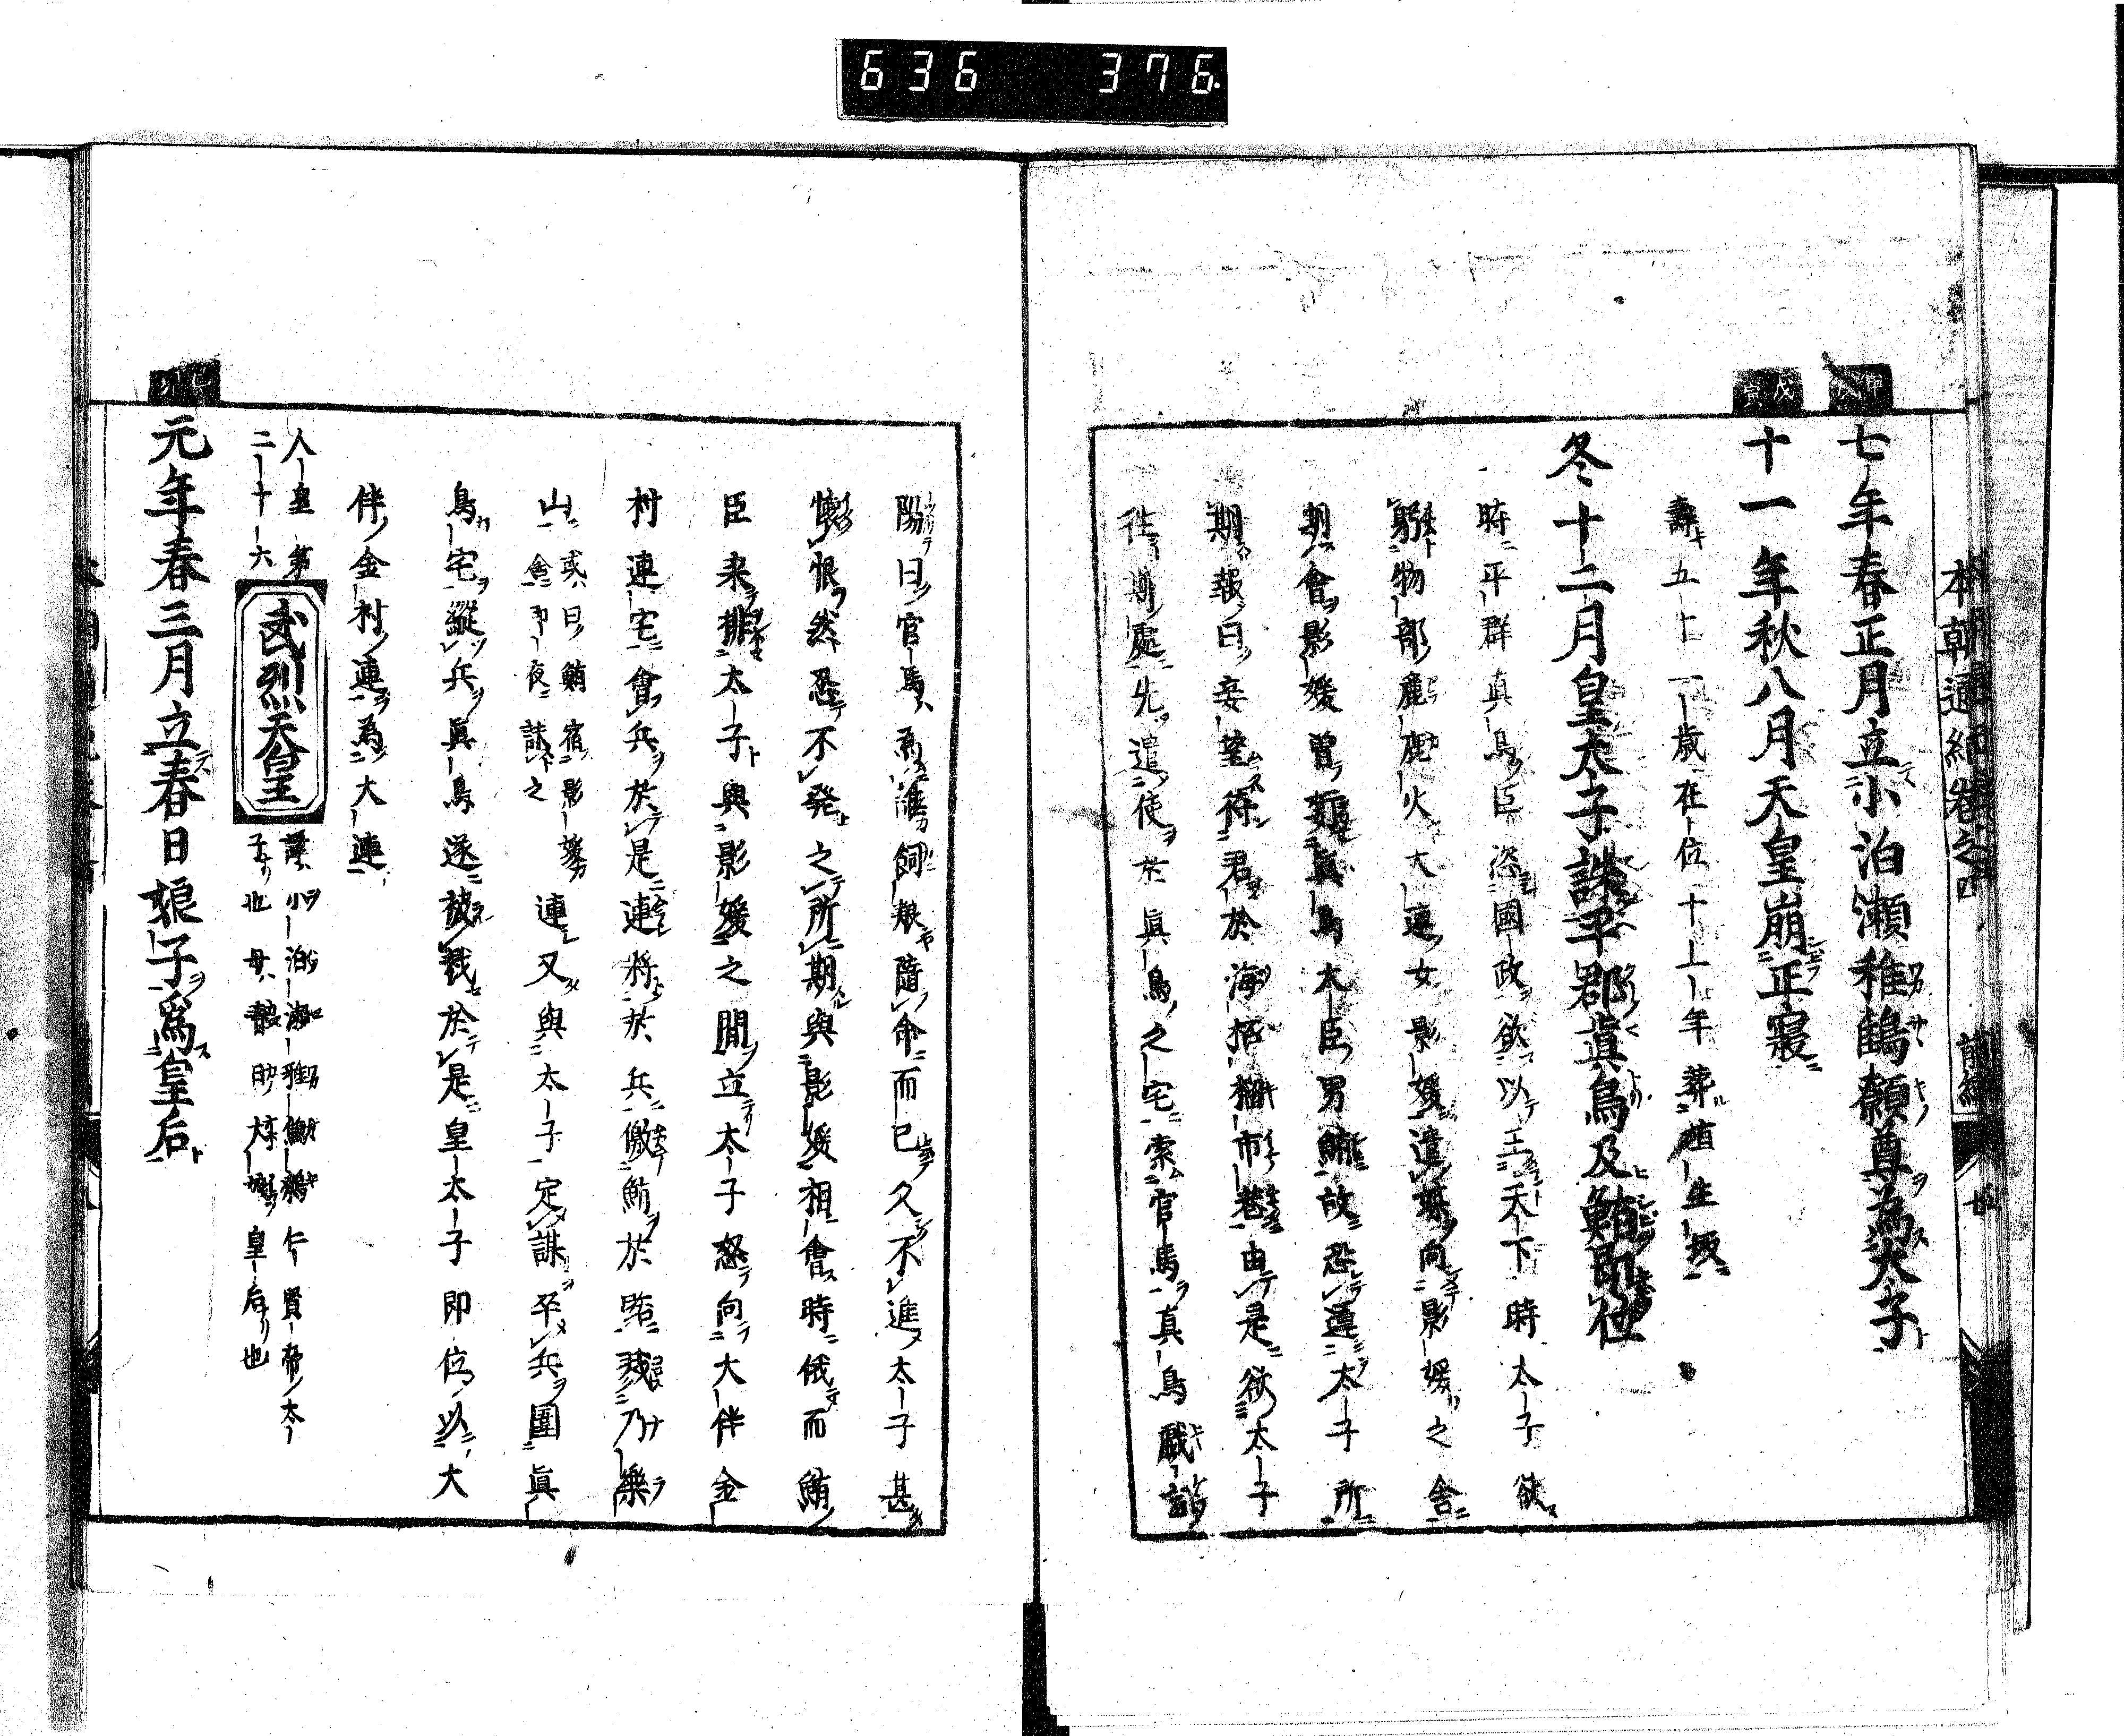 636 376
本朝通紀卷之四 前編 七
甲戌
七年春正月立小泊瀬稚鷦鷯尊為太子
戊寅
十一年秋八月天皇崩正寢
壽五十一歳在位十一年葬埴生坂
冬十二月皇太子誅平郡真鳥及鮪即位
時平群真鳥臣恣國政欲以王天下時太子欲
躬物部麁鹿火大連女影媛遣媒向影媛之舍
期會影媛曽奸真鳥大臣男鮪故恐違太子所
期報曰妾望待君於海柘榴市巷由是欲太子
往期處先遣使於真鳥之宅索官馬真鳥戲言
陽曰官馬為誰飼養隨命而已久不進太子甚
懐恨然忍不発之所期與影媛相會時俄而鮪
臣来排太子與影媛之間立太子怒向大伴金
村連宅會兵於是連将於兵徼鮪於路戮乃樂
山或曰鮪宿影媛舍即夜誅之連又與太子定謀卒兵圍真
鳥宅縦兵真鳥遂被戮於是皇太子即位以大
伴金村連為大連
人皇第二十六 武烈天皇 諱小泊瀬稚鷦鷯仁賢帝太子也母春日大娘皇后也
己卯
元年春三月立春日娘子為皇后